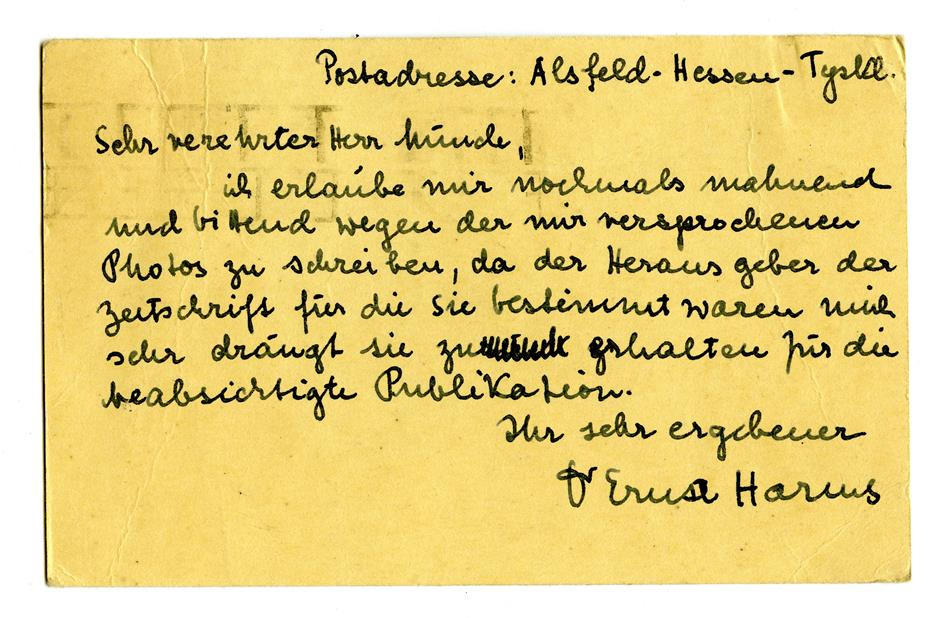 Postadresse: Alsfeld - Hessen - Tyskl.
Sehr verehrter Herr Munch,
ich erlaube mir nochmals mahnend
und bittend wegen der mir versprochenen
Photos zu schreiben, da der Herausgeber der
Zeitschrift für die sie bestimmt waren mich
sehr drängt sie zu erhalten für die
beabsichtigte Publikation.
Ihr sehr ergebener
Dr Ernst Harms